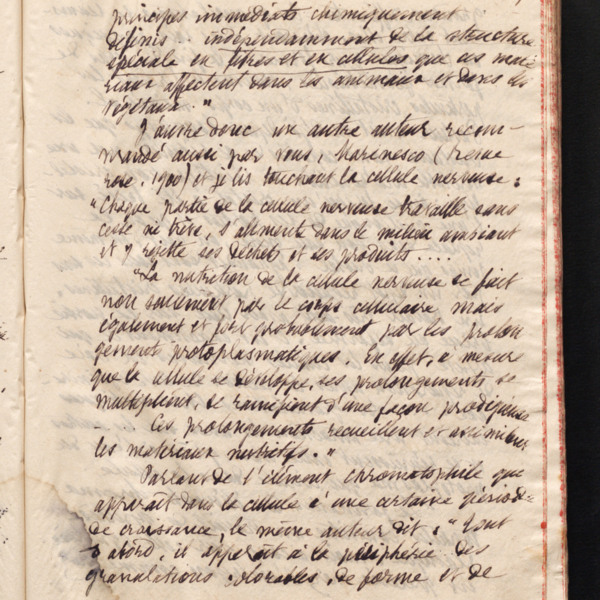 principes immédiats chimiquement
définis indépendamment de la structure
spéciale en fibres et en cellules que ces maté
riaux affectent dans les animaux et dans les
végétaux."
J'ouvre donc un autre auteur recom-
mandé aussi par vous, Marenesco (Revue
rose. 1900) et je lis touchant la cellule nerveuse:
"Chaque partie de la cellule nerveuse travaille sans
cesse se, s'alimente dans le milieu ambiant
et y rejette ses déchets et ses produits....
"La nutrition de la cellule nerveuse se fait
non seulement par le corps cellulaire, mais
également et par les prolon
gements protoplasmatiques. En effet, à mesure
que la cellule se développe, ses prolongements se
multiplient, se ramifient d'une façon prodigieuse
Ces prolongements recueillent et assimilent
les matériaux nutritifs."
Parlant de l'élément chromatophile que
apparaît dans la cellule à une certaine période
de croissance, le même auteur dit: "Tout
d'abord, il apparaît à la périphérie des
granulations colorables, de forme et de